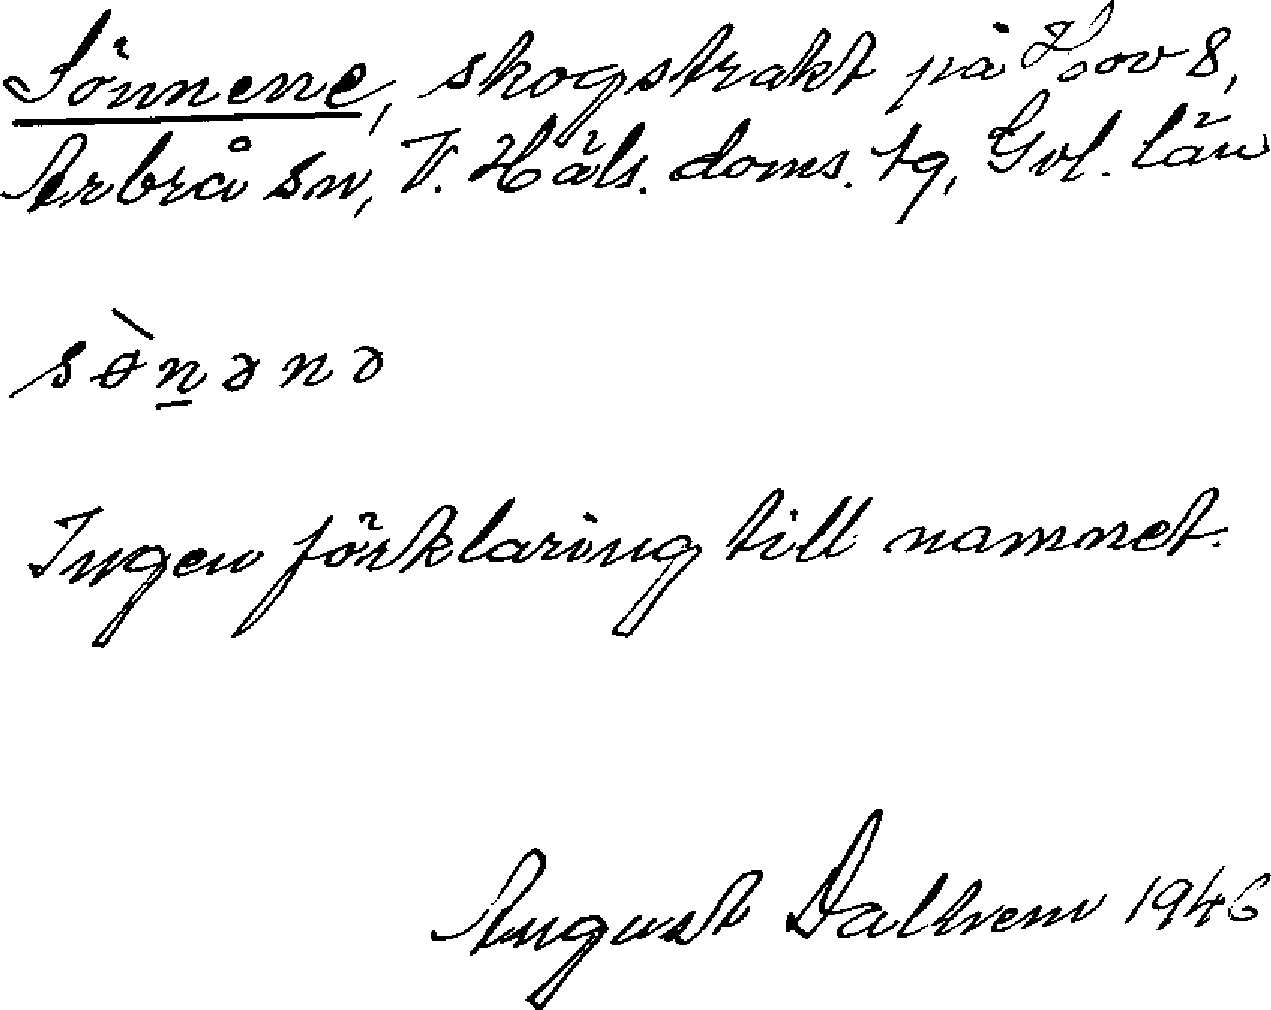 Sönnene, skogstrakt på Hov 8,
Arbrå sn, V. Häls. doms. tg, Gvl. län
sø̀n̲ənə
Ingen förklaring till namnet.
August Dalhem 1946